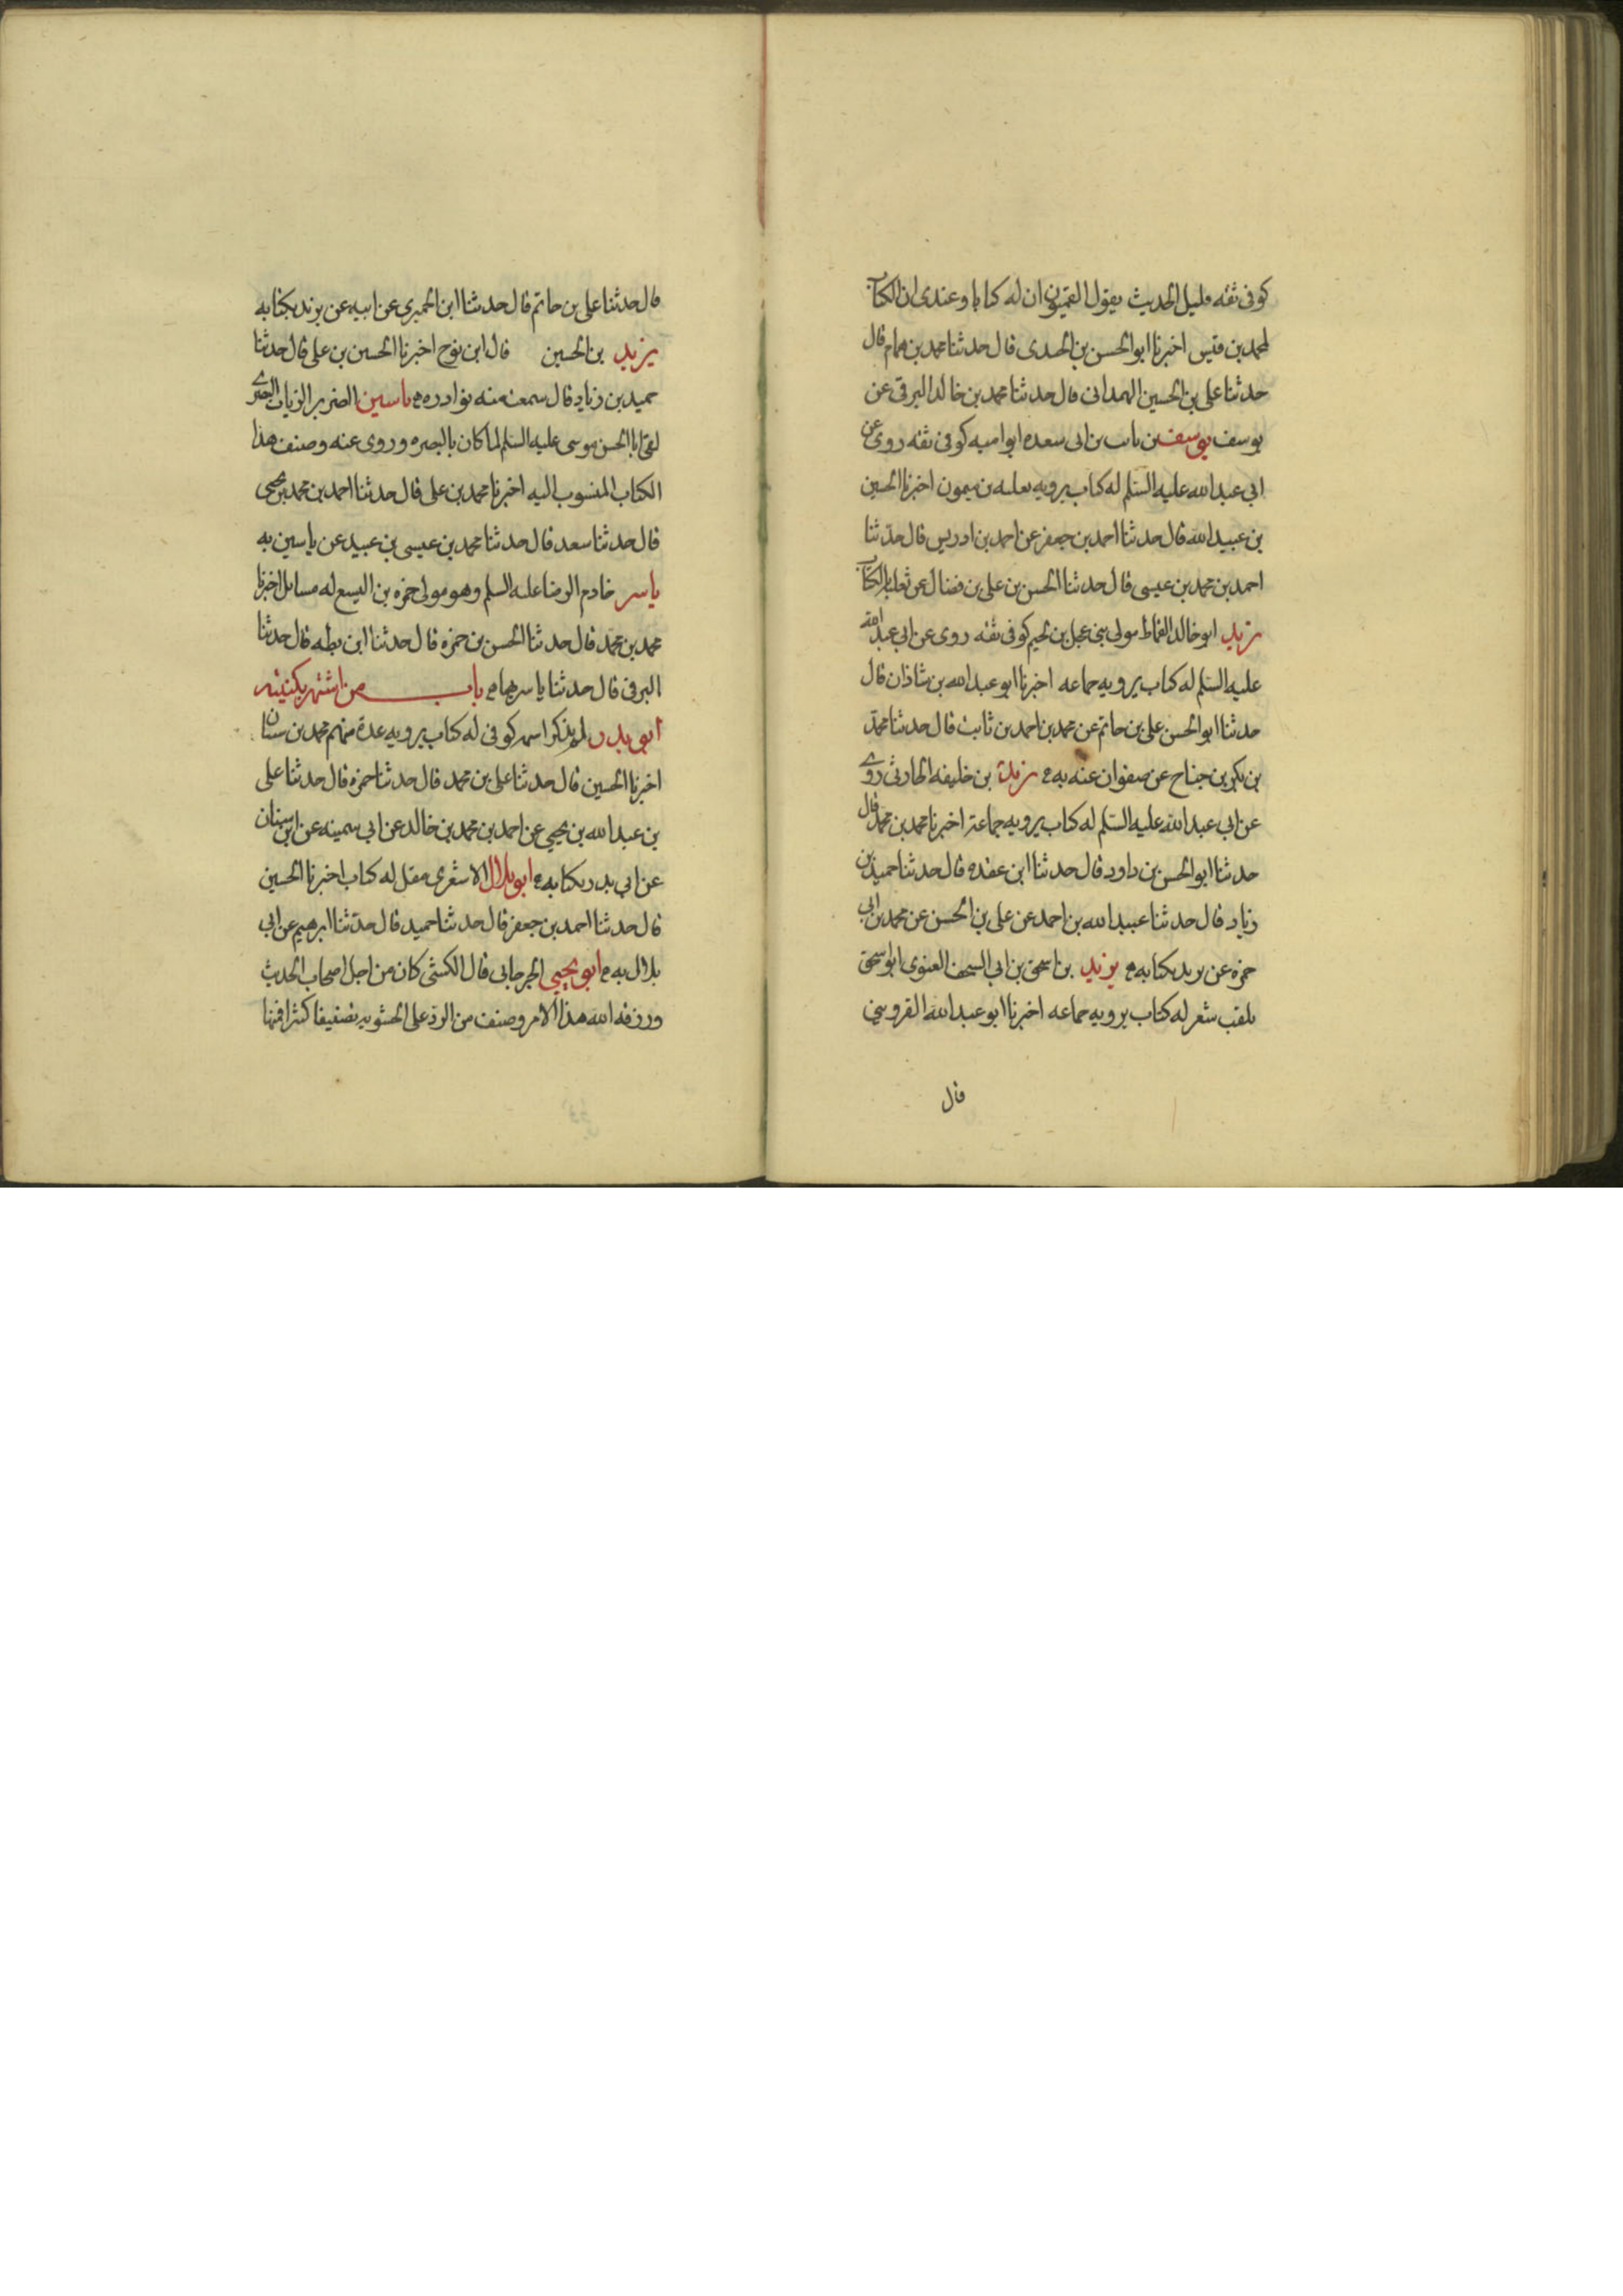 كوفى ثقه قليل الحديث يقول القميون ان له كتابا وعندى ان الكتاب
لمحمد بن قيس اخبرنا ابو الحسن بن الجندى قال حدثنا محمد بن همام قال
حدثنا على بن الحسين الهمدانى قال حدثنا محمد بن خالد البرقى عن
يوسف يوسف بن ثابت بن ابى سعده ابو اميه كوفى ثقه روى عن
ابي عبد الله عليه السلم له كتاب يرويه ثعلبه بن ميمون اخبرنا الحسين
بن عبيد الله قال حدثنا احمد بن جعفر عن احمد بن ادريس قال حدثنا
احمد بن محمد بن عيسى قال حدثنا الحسن بن على بن فضال عن ثعلبه بالكتاب
يزيد ابو خالد القماط مولى بنى عجل بن لجيم كوفى ثقه روى عن ابى عبد الله
عليه السلم له كتاب يرويه جماعه اخبرنا ابو عبد الله بن شاذان قال
حدثنا ابو الحسن على بن حاتم عن محمد بن احمد بن ثابت قال حدثنا محمد
بن بكر بن جناح عن صفوان عنه به يزيد بن خليفه الحارثى روى
عن ابي عبد الله عليه السلم له كتاب يرويه جماعة اخبرنا محمد بن محمد قال
حدثنا ابو الحسن بن داود قال حدثنا ابن عقده قال حدثنا حميد بن
زياد قال حدثنا عبيد الله بن احمد عن على بن الحسن عن محمد بن ابي
حمزه عن يزيد بكتابه يزيد بن اسحق بن ابي السخف الغنوى ابو اسحق
يلقب شعر له كتاب يرويه جماعه اخبرنا ابو عبد الله القزوينى
قال
قال حدثنا على بن حاتم قال حدثنا ابن الحميرى عن ابيه عن يزيد بكتابه
يزيد بن الحسين قال ابن نوح اخبرنا الحسين بن على قال حدثنا
حميد بن زياد قال سمعت منه نوادره ياسين الضرير الزيات البصرى
لقى ابا الحسن موسى عليه السلم لما كان بالبصره وروى عنه وصنف هذا
الكتاب المنسوب اليه اخبرنا محمد بن على قال حدثنا احمد بن محمد بن يحيى
قال حدثنا سعد قال حدثنا محمد بن عيسى بن عبيد عن ياسين به
ياسر خادم الرضا عليه السلم وهو مولى حمزه بن اليسع له مسائل اخبرنا
محمد بن محمد قال حدثنا الحسن بن حمزه قال حدثنا ابن بطه قال حدثنا
البرقى قال حدثنا ياسر بها باب من اشتهر بكنيته
ابو بدر لم يذكر اسمه كوفى له كتاب يرويه عدة منهم محمد بن سنان
اخبرنا الحسين قال حدثنا على بن محمد قال حدثنا حمزه قال حدثنا على
بن عبد الله بن يحيي عن احمد بن محمد بن خالد عن ابي سمينه عن ابن سنان
عن ابي بدر بكتابه ابو بلال الاشعرى مقل له كتاب اخبرنا الحسين
قال حدثنا احمد بن جعفر قال حدثنا حميد قال حدثنا ابرهيم عن ابي
بلال به ابو يحيي الجرجانى قال الكشى كان من اجل اصحاب الحديث
ورزقه الله هذا الامر وصنف من الرد على الحشويه تصنيفا كثيرا فمنها